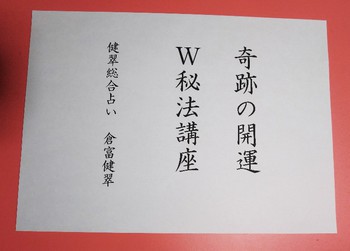 奇跡の開運
W秘法講座
健翠総合占い 倉富健翠